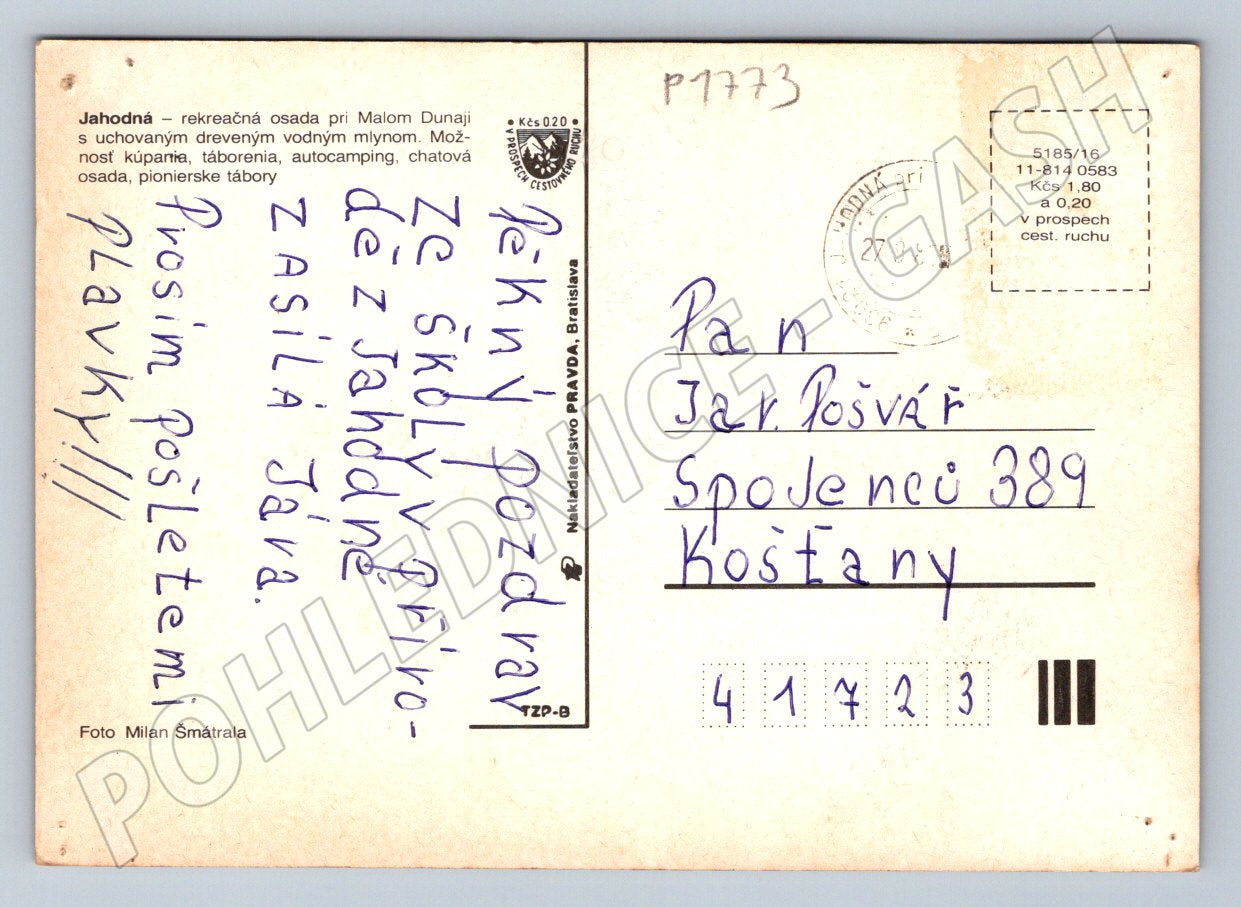 P1773
Jahodná – rekreačná osada pri Malom Dunaji
s uchovaným dreveným vodným mlynom. Mož-
nosť kúpania, táborenia, autocamping, chatová
osada, pionierske tábory
Kčs 0.20
V PROSPECH CESTOVNÉHO RUCHU
Pěkný pozdrav
ze školy v příro-
dě z Jahodné
zasílá Jára.
Prosím pošlete mi
plavky!!!
Foto Milan Šmátrala
Nakladateľstvo PRAVDA, Bratislava
TZP-B
JAHODNÁ pri
27
5185/16
11-814 0583
Kčs 1,80
a 0,20
v prospech
cest. ruchu
Pan
Jar. Pošvář
Spojenců 389
Košťany
41723
POHLEDNICE - GASH